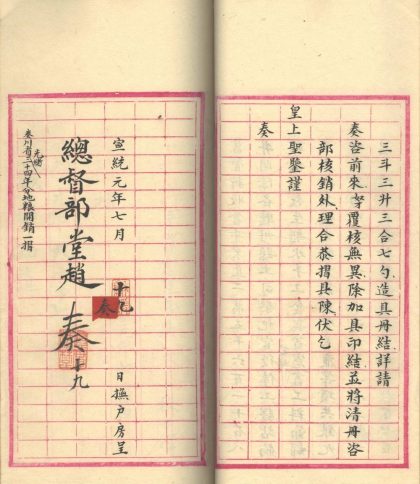 三斗三升三合七勺造具冊結詳請
奏咨前來奴才覆核無異除加具印結並將清冊咨
部核銷外理合恭摺具陳伏乞
皇上聖鑒謹
奏
宣統元年七月十七日撫戶房呈
奏
總督部堂趙 奏 十九
奏川省光緒三十四年分地粮開銷一摺